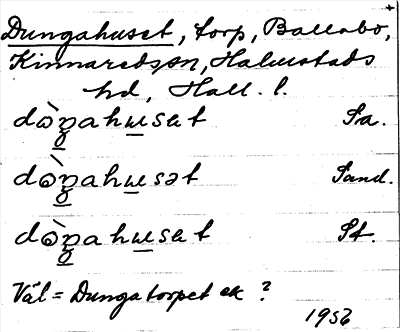 Dungahuset, torp, Ballabo,
Kinnareds sn, Halmstads
hd, Hall. l.
dòŋahusat Sa.
dòŋahusət Sand.
dòŋahusat St.
Väl = Dungatorpet ek ?
1956